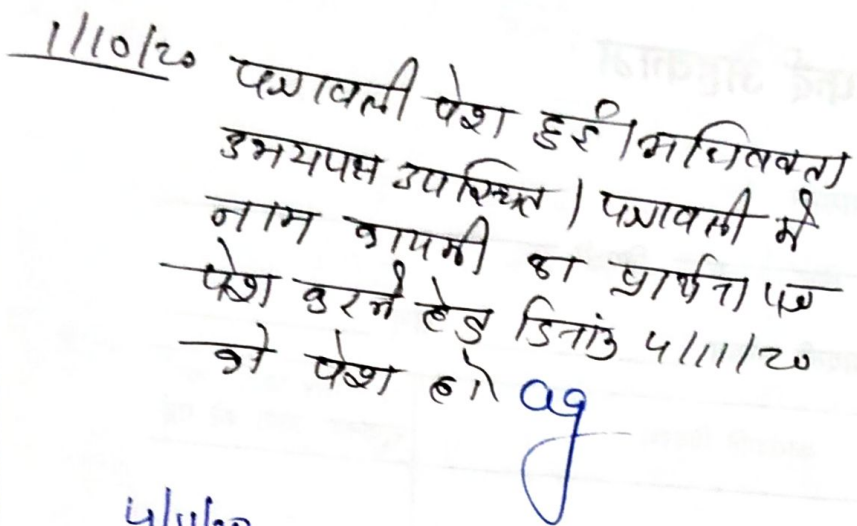 1/10/20 पत्रावली पेश हुई। अधिवक्ता
उभयपक्ष उपस्थित। पत्रावली में
नाम कायमी का प्रार्थना पत्र
पेश करने हेतु दिनांक 4/11/20
को पेश हो
ag
4/11/20